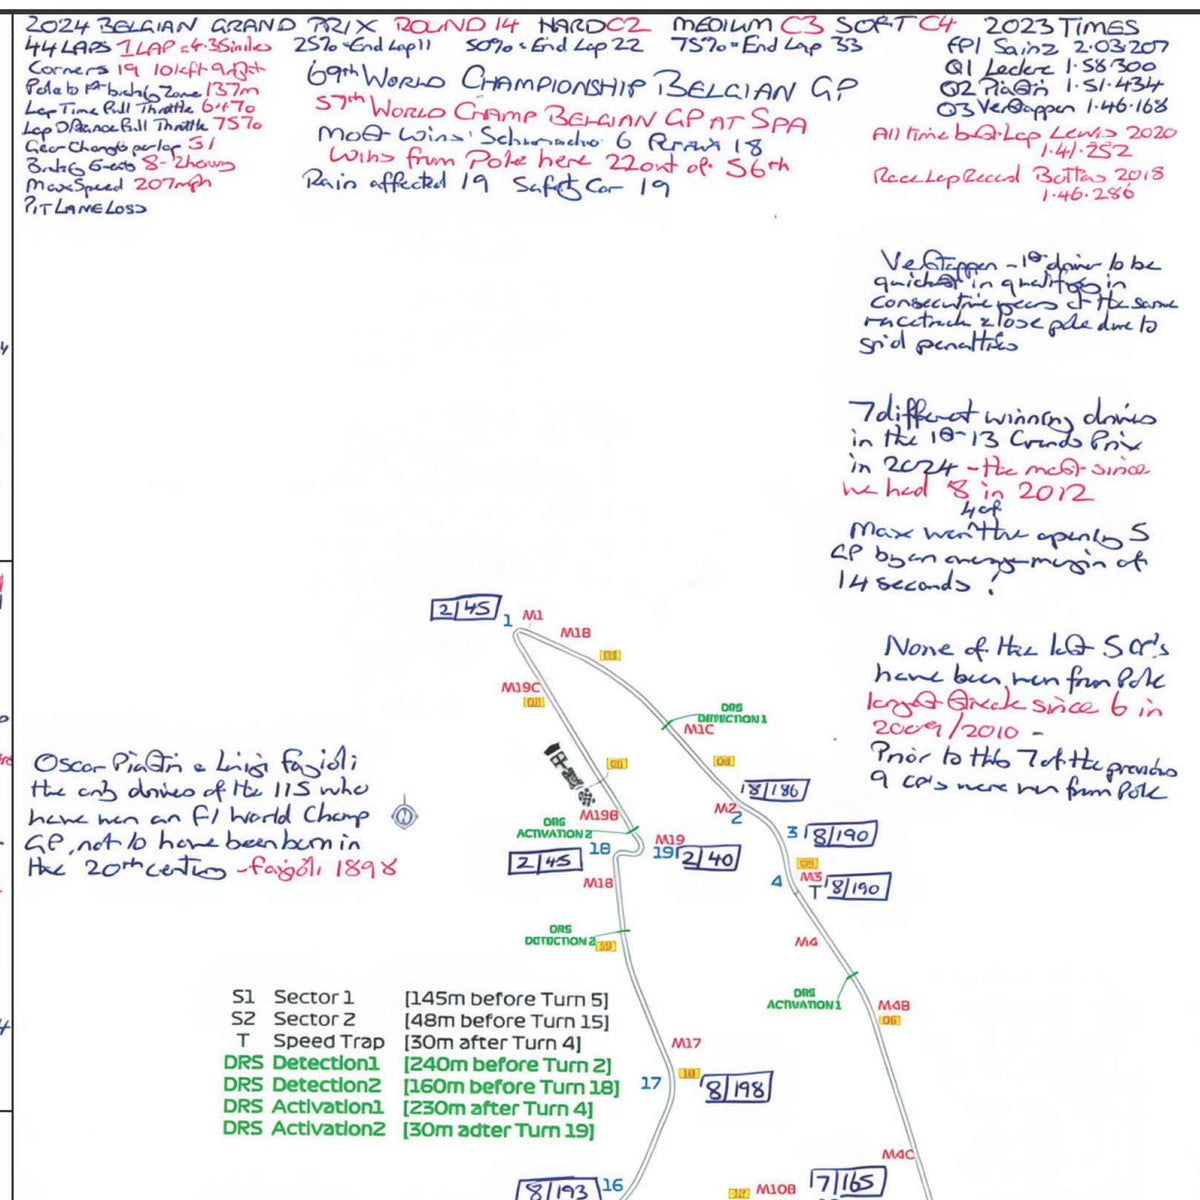 2024 BELGIAN GRAND PRIX ROUND 14 HARD C2 MEDIUM C3 SOFT C4 2023 TIMES
44 LAPS 1 LAP = 4.35 miles 25% = End Lap 11 50% = End Lap 22 75% = End Lap 33
Corners 19 10 left 9 right
Pole to 1st braking Zone 137m
Lap Time Full Throttle 64%
Lap Distance Full Throttle 75%
Gear Changes per lap 51
Braking Events 8 - 2 heavy
Max Speed 207mph
PIT LANE LOSS
69th WORLD CHAMPIONSHIP BELGIAN GP
57th WORLD CHAMP BELGIAN GP AT SPA
Most Wins Schumacher 6 Ferrari 18
Wins from Pole here 22 out of 56
Rain affected 19 Safety Car 19
FP1 Sainz 2.03.207
Q1 Leclerc 1.58.300
Q2 Piastri 1.51.434
Q3 Verstappen 1.46.168
All time best Lap Lewis 2020
1.41.252
Race Lap Record Bottas 2018
1.46.286
Verstappen - 1st driver to be
quickest in qualifying in
consecutive years at the same
racetrack & lose pole due to
grid penalties
7 different winning drivers
in the 1st 13 Grands Prix
in 2024 - the most since
we had 8 in 2012
4 of
Max won the opening 5
GP by an average margin of
14 seconds!
None of the last 5 GP's
have been won from Pole
longest streak since 6 in
2009/2010 -
Prior to this 7 of the previous
9 GP's were won from Pole
Oscar Piastri & Luigi Fagioli
the only drivers of the 115 who
have won an F1 World Champ
GP, not to have been born in
the 20th century - Fagioli 1898
2/45
1 M1
M1B
M19C
DRS
DETECTION 1
M1C
8/186
M2
2
3 8/190
M3
4 T 8/190
M19B
DRS
ACTIVATION 2
18
M19
19 2/40
2/45
M18
DRS
DETECTION 2
M4
DRS
ACTIVATION 1
M4B
06
S1 Sector 1 [145m before Turn 5]
S2 Sector 2 [48m before Turn 15]
T Speed Trap [30m after Turn 4]
DRS Detection1 [240m before Turn 2]
DRS Detection2 [160m before Turn 18]
DRS Activation1 [230m after Turn 4]
DRS Activation2 [30m adter Turn 19]
M17
17
8/198
M4C
8/193 16
M10B
7/165